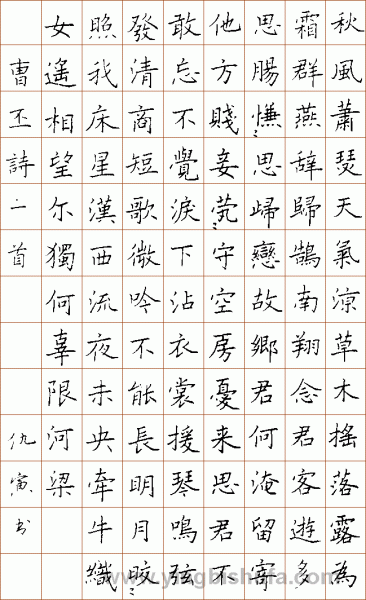 秋風蕭瑟天氣涼草木搖落露為
霜群燕辞歸鵠南翔念君客遊多
思腸慊〻思歸戀故鄉君何淹留寄
他方賤妾茕〻守空房憂来思君不
敢忘不覺淚下沾衣裳援琴鳴弦
發清商短歌微吟不能長明月皎〻
照我床星漢西流夜未央牽牛織
女遙相望尔獨何辜限河梁
曹丕詩一首 仇寅书
www.yingbishufa.com